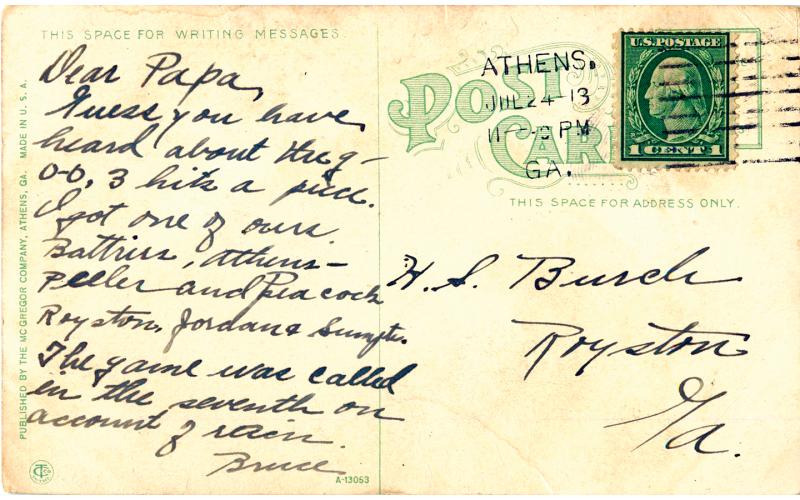 THIS SPACE FOR WRITING MESSAGES.
Dear Papa,
Guess you have
heard about the g-
0-0, 3 hits a piece.
I got one of ours.
Battries, Athens-
Peeler and Peacock
Royston, Jordan & Sumpter.
The game was called
in the seventh on
account of rain.
Bruce
PUBLISHED BY THE MCGREGOR COMPANY, ATHENS, GA. MADE IN U.S.A.
A-13053
POST CARD
ATHENS.
JUL 24 13
PM
GA.
U.S. POSTAGE
1 CENT 1
THIS SPACE FOR ADDRESS ONLY.
H. S. Burch
Royston
Ga.